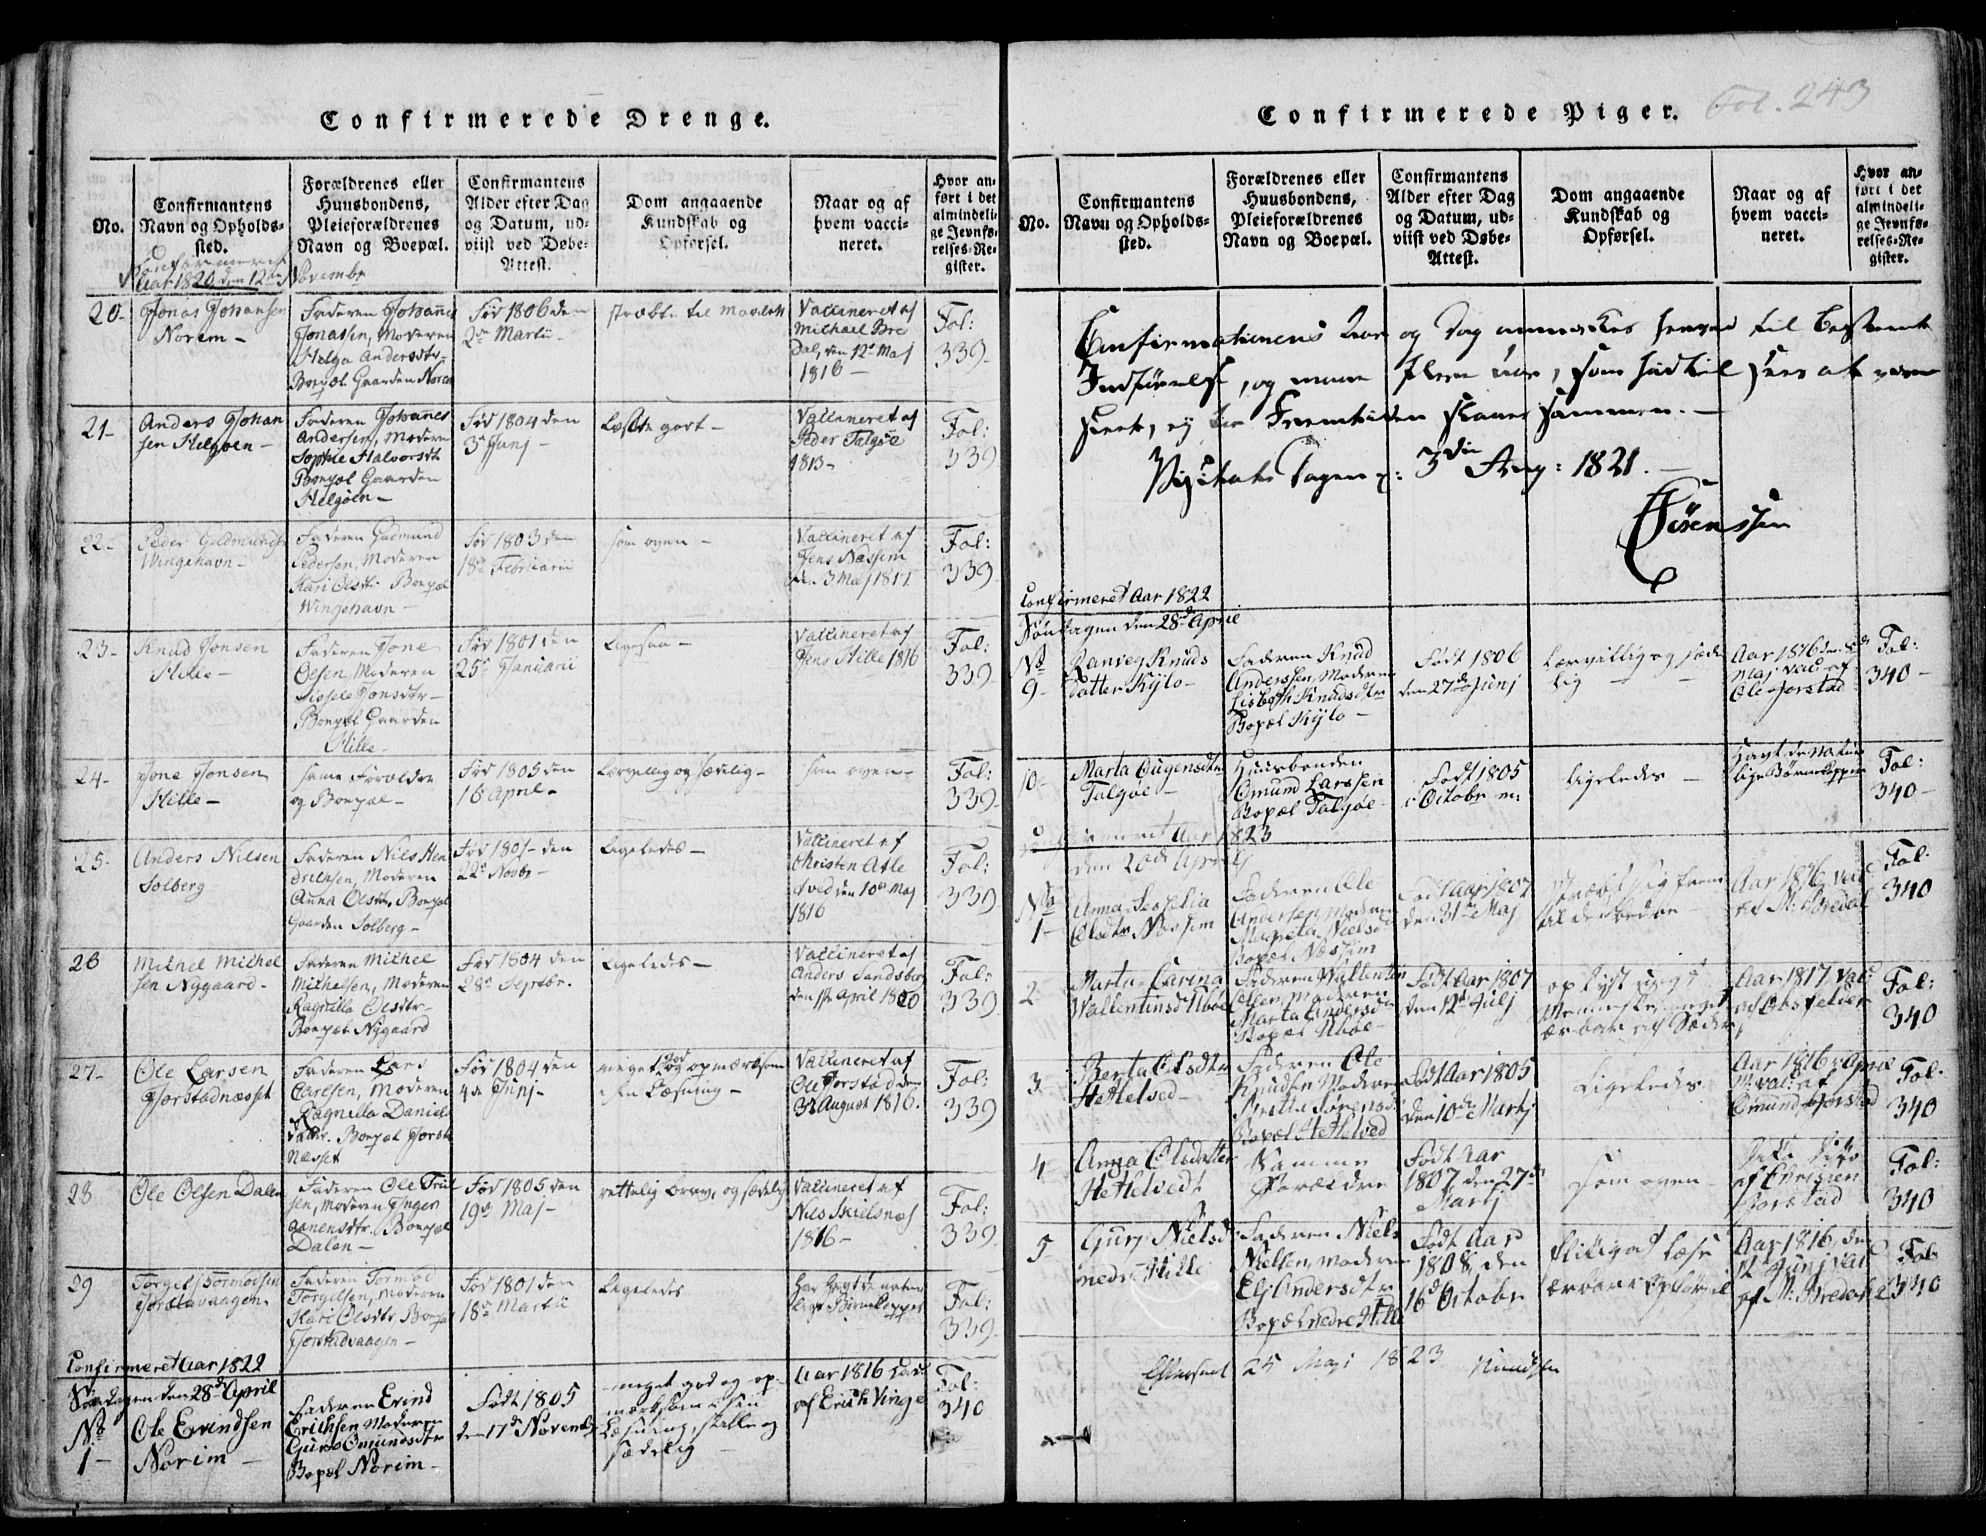 Confirmerede Drenge.
No.
Confirmantens
Navn og Opholds-
sted.
Forældrenes eller
Huusbondens,
Pleieforældrenes
Navn og Boepæl.
Confirmantens
Alder efter Dag
og Datum, ud-
viist ved Døbe-
Attest.
Dom angaaende
Kundskab og
Opførsel.
Naar og af
hvem vacci-
neret.
Hvor an-
ført i det
almindeli-
ge Jevnfø-
relses-Re-
gister.
Confirmeret
Aar 1820 den 12te Novembr
20-
Jonas Johansen
Norem -
Faderen Johannes
Jonasen, Moderen
Helga Andersdtr
Boepæl Gaarden Norem
Fød 1806 den
2de Martii
Vaccineret af
Michael Bre
Dal, den 12te Maj
1816 -
Fol:
339-
21-
Anders Johan
sen Helgøen -
Faderen Johanes
Andersen, Moderen
Sophie Halvorsdtr
Boepæl Gaarden
Helgøen -
Fød 1804 den
3de Junj -
Vaccineret af
Peder Talgøe
1813-
Fol:
339
22-
Peder Gudmundsen
Wingehavn -
Faderen Gudmund
Pedersen, Moderen
Kari Olsdtr Boepæl
Wingehavn -
Fød 1803 den
18de Februarii
som oven -
Vaccineret af
Jens Næssem
den 3 Maj 1817
Fol:
339
23-
Knud Jonsen
Hille -
Faderen Jone
Olsen, Moderen
Sissele Jonsdtr -
Boepæl Gaarden
Hille -
Fød 1801 den
25de Januarii
Ligesaa -
Vaccineret af
Jens Hille 1816
Fol:
339
24-
Jone Jonsen
Hille -
samme Forældre
og Boepæl -
Fød 1805 den
16 April -
Lærvillig og sædelig -
som oven -
Fol:
339-
25-
Anders Nilsen
Solberg
Faderen Nils Hen
drichsen, Moderen
Anna Olsdtr, Boepæl
Gaarden Solberg -
Fød 1801 den
22de Novbr -
Ligeledes -
Vaccineret af
Christen Atle
den 10de Maj
1816
Fol:
339
26
Michel Michel
sen Nygaard -
Faderen Michel
Michelsen, Moderen
Ragnilla Olsdtr -
Boepæl Nygaard
Fød 1804 den
28de Septbr.
Ligeledes -
Vaccineret af
Anders Sandsberg
April 1820
Fol:
339
27-
Ole Larsen
Fjorstadnæsset
Faderen Lars
Carlsen, Moderen
Ragnilla Daniels
datter. Boepæl
Næsset
Fød 1804 den
4de Junj -
meget god og opmærksom
i sin Læsning -
Vaccineret af
Ole Fjorstad den
August 1816.
Fol:
339
28
Ole Olsen Dalen
Faderen Ole Truls
sen, Moderen Inger
Boepæl
Dalen -
Fød 1805 den
19de Maj -
og sædelig
Vaccineret af
Nils Skielsnæs
1816 -
Fol:
339
29
Torgels Tormodsen
Fjorstavaagen
Faderen Tormod
Torgelsen, Moderen
Kari Olsdtr Boepæl
Fjorstadvaagen -
Fød 1801 den
18de Martii
Ligeledes
har havt de natur
lige Børnekopper
Fol:
339
Confirmeret Aar 1822
Søndagen den 28de April
No
1-
Ole Evindsen
Norim -
Faderen Evind
Erichsen Moderen
Guro Omundsdtr
Bopæl Norim -
Født 1805
den 17de Novemb.
meget god og op-
mærksom i sin
Læsning, stille og
sædelig -
Aar 1816 vac.
af Erich Vinge
Fol:
340
Confirmerede Piger.
Fol. 243
No.
Confirmantens
Navn og Opholds-
sted.
Forældrenes eller
Huusbondens,
Pleieforældrenes
Navn og Boepæl.
Confirmantens
Alder efter Dag
og Datum, ud-
viist ved Døbe-
Attest.
Dom angaaende
Kundskab og
Opførsel.
Naar og af
hvem vacci-
neret.
Hvor an-
ført i det
almindeli-
ge Jevnfø-
relses-Re-
gister.
Confirmationens Aar og Dag til bestemt
Indførelse, og som hidtil sees at være
skeet, ej for Fremtiden sammen. -
Visitats Dagen d: 3die Aug: 1821. -
Sørenssen
Confirmeret Aar 1822
Søndagen den 28de April
No
9-
Ranveg Knuds
datter Kylo -
Faderen Knud
Anderssen, Moderen
Lisbeth Knudsdtr
Bopæl Kylo -
Født 1806
den 27de Junj
Lærvillig og sæde
lig -
Aar 1816 den
Maj vac: af
Ole Fjorstad
Fol:
340-
10-
Marta Ougensdtr
Talgøe -
Huusbonden
Omund Larssen
Bopæl Talgøe -
Født 1805
i Octobr m:
Ligeledes -
Havt de natur
lige Børnekopper
Fol:
340-
Confirmeret Aar 1823
den 20de Aprilj
No
1-
Olsdtr Næssem
Faderen Ole
Andersen, Moderen
Nielsd
Bopæl Næssem
Født Aar 1807
den 31te Maj
Aar 1816 vac
af M: Bredal
Fol:
340
2
Marta Carina
Wallentinsd Uboe
Faderen Wallentin
Moderen
Marta Andersdr
Bopæl Uboe -
Født Aar 1807
den 12te Julj
Aar 1817 vac
Fol:
340
3
Berta Olsdtr
Hetlelved -
Faderen Ole
Knudsen Moderen
Sørensd
Bopæl Hetlelved
Født Aar 1805
den 10de Martj
Ligeledes
Aar 1816 i April
M. vac: af
Omund Fjorstad
Fol:
340
4
Anna Olsdatter
Hetlelved
Samme
Forældre
Født Aar
1807 den 27de
Martj
som oven
af Christen
Fjorstad
Fol:
340
5
Guro Nielsd
nedre Hille
Faderen Niels
Nielsen, Moderen
Eli Andersdtr
Bopæl nedre Hille
Født Aar
1808, den
16de Octobr
Aar 1816 den
12te Junj vac
af M: Bredahl
Fol
340
Efterseet 25 Maji 1823 Knudsen